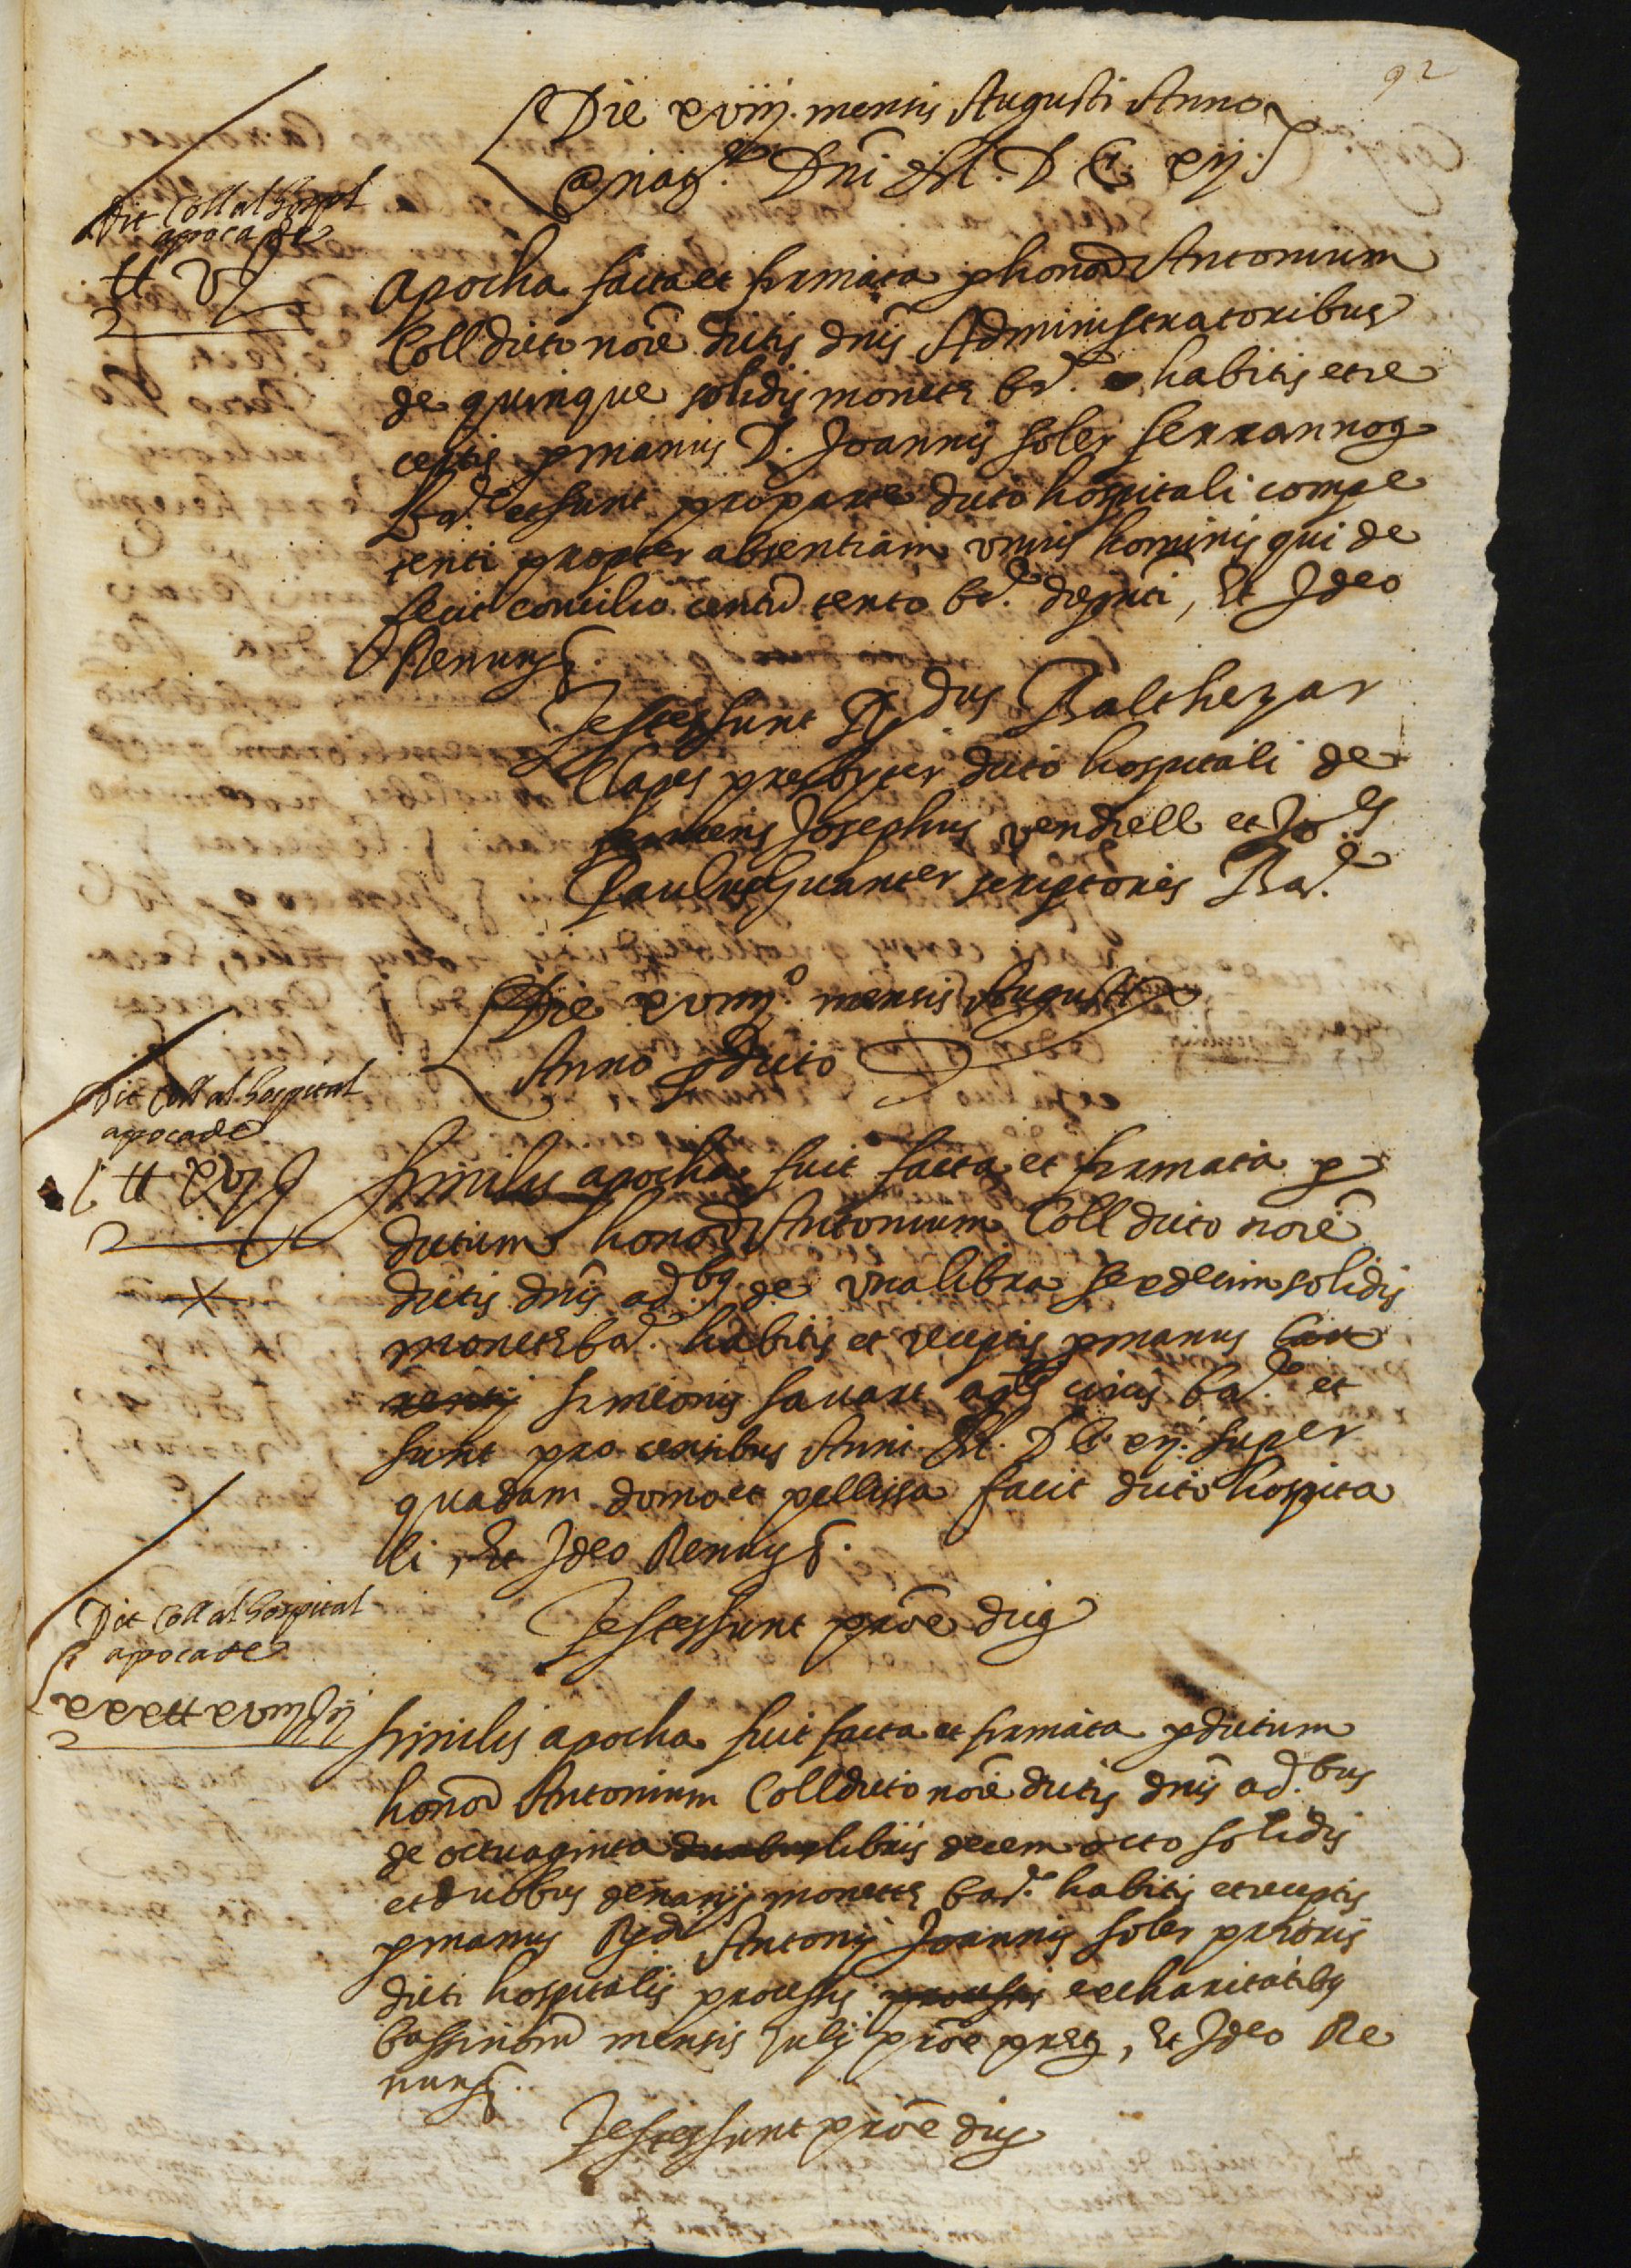 92
Die xviij. mensis Augusti Anno
a nat.e Dni M. D C. xij.
Dit Coll al hospl
apoca de
tt v ß
Apocha facta et firmata p honor Antonium
Coll dicto noīe dictis dnīs Administratoribus
de quinque solidis monete bar. habitis et re
ceptis p manus D. Joannis soler serra not
Bar.e et sunt pro parte dicto hospitali compe
tenti propter absentiam unius hominis qui de
fecit concilio cent
 tento bar.e deputi, Et Ideo
Renun ß.
Testes sunt R dus Balthezar
Clapes presbyter dicto hospitali de
serviens Josephus vendrell et Jo es
Paulus Guanter scriptores Bar.e
Die xviiij.o mensis Augusti
Anno p dicto
Dit Coll al hospital
apoca de
j tt xvj ß
Similis apocha fuit facta et firmata p
dictum honor Antonium Coll dicto noīe
dictis dnīs ad.bg de una libra sexdecim solidis
monete bar. habitis et receptis p manus Lau
rentij simeonis savart ag te civis bar.e et
sunt pro censibus Anni M. D C. xij. super
quadam domo et pellissa facit dicto hospita
li, Et Ideo Renun ß.
Testes sunt prōe dicg
Dit Coll al hospital
apoca de
lxxx tt xviij ß ij
Similis apocha fuit facta et firmata p dictum
honor Antonium Coll dicto noīe dictis dnīs ad.bus
de octuaginta duabus libris decem octo solidis
et duobus denarijs monete bar.e habitis et receptis
p manus Rdi Antonij Joannis soler prioris
dicti hospitalis processis processis ex charitatibg
bassinorū mensis Julij prōe pret, Et Ideo Re
nun ß.
Testes sunt prōe dicg